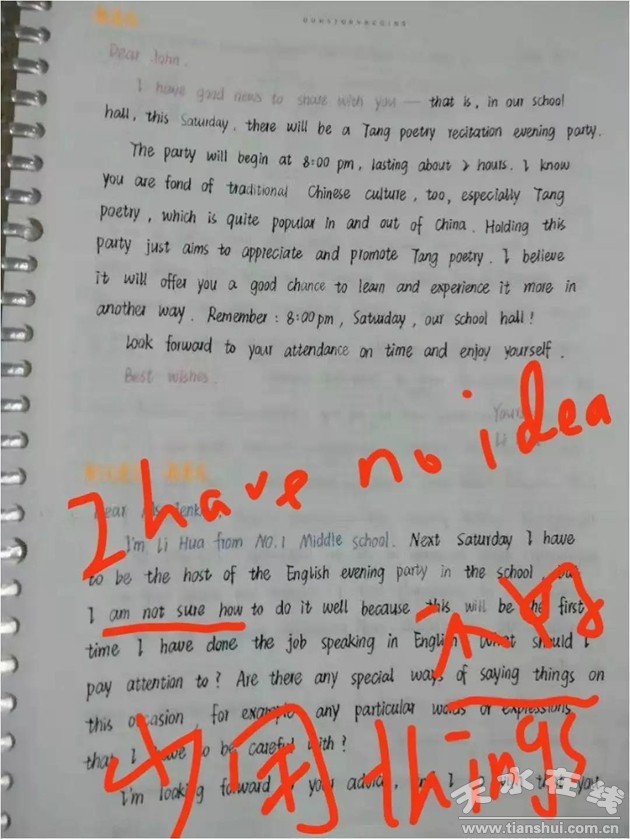 DONSTOPNAGGING
Dear John,
I have good news to share with you — that is, in our school
hall, this Saturday, there will be a Tang poetry recitation evening party.
The party will begin at 8:00 pm, lasting about 2 hours. I know
you are fond of traditional Chinese culture, too, especially Tang
poetry, which is quite popular in and out of China. Holding this
party just aims to appreciate and promote Tang poetry. I believe
it will offer you a good chance to learn and experience it more in
another way. Remember: 8:00pm, Saturday, our school hall!
Look forward to your attendance on time and enjoy yourself.
Best wishes.
Li
I have no idea
Dear
I'm Li Hua from NO.1 Middle school. Next Saturday I have
to be the host of the English evening party in the school
I am not sure how to do it well because this will be the first
time I have done the job speaking in English. What should I
pay attention to? Are there any special ways of saying things on
this occasion, for example any particular words or expressions
that I have to be careful with?
不好
少用things
I'm looking forward
天水在线
www.tianshui.com.cn